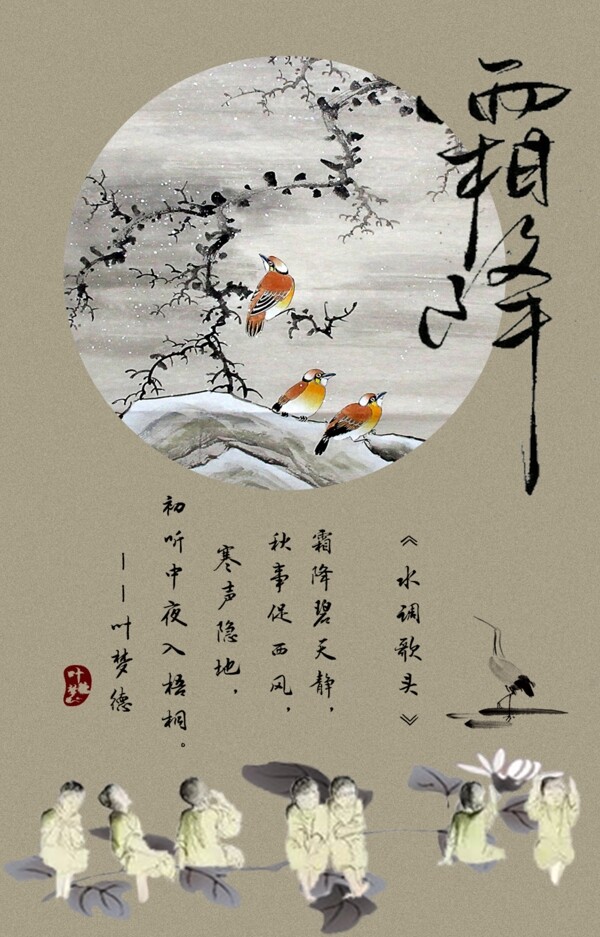 霜降
《水调歌头》
霜降碧天静，
秋事促西风，
寒声隐地，
初听中夜入梧桐。
——叶梦德